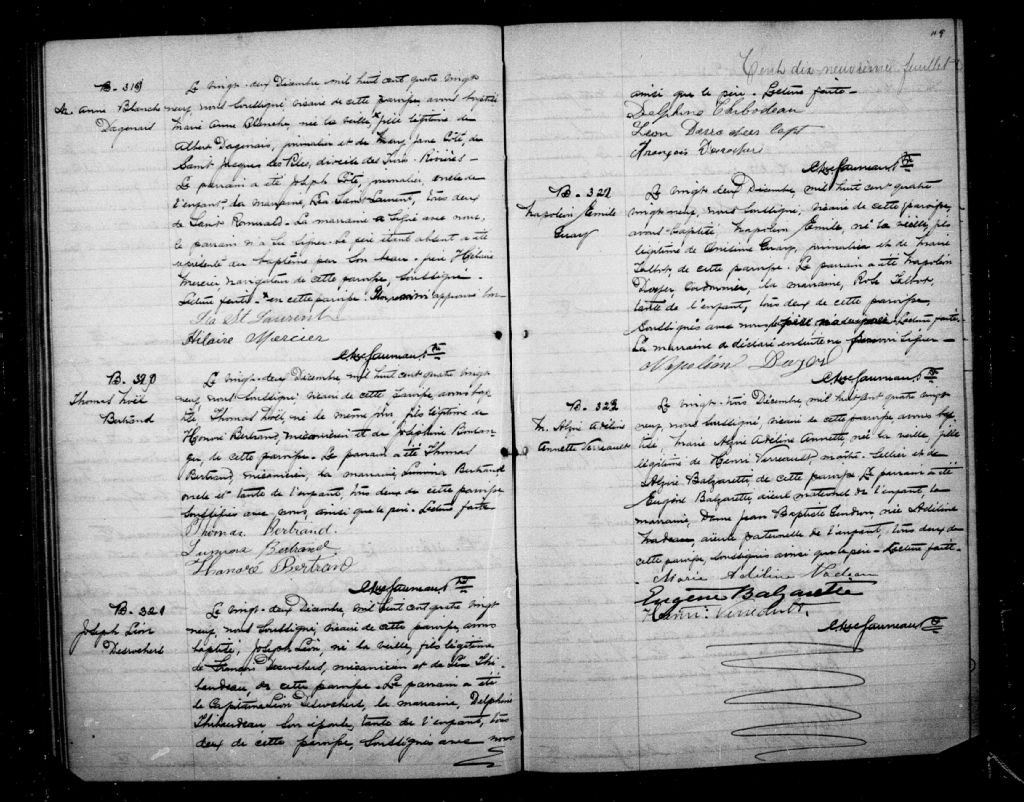 B - 319
M. Anne Blanche
Dagenais
Le vingt-deux Décembre mil huit cent quatre vingt
neuf, nous soussigné, vicaire de cette paroisse, avons baptisé
Marie Anne Blanche, née la veille, fille légitime de
Albert Dagenais, journalier et de Mary Jane Côté, de
Saint Jacques des Piles, diocèse des Trois-Rivières -
Le parrain a été Joseph Côté, journalier, oncle de
l'enfant, la marraine, Léa Saint Laurent, tous deux
de Saint Romuald. La marraine a signé avec nous,
le parrain n'a su signer. Le père étant absent a été
représenté au baptême par son beau-père Hilaire
Mercier, navigateur de cette paroisse, soussigné -
Lecture faite - en cette paroisse.
Léa St Laurent
Hilaire Mercier
B - 320
Thomas Noël
Bertrand
Le vingt-deux Décembre, mil huit cent quatre vingt
neuf, nous soussigné vicaire de cette paroisse, avons bap-
tisé Thomas Noël, né le même jour fils légitime de
Honoré Bertrand, mécanicien et de Joséphine Boulan-
ger, de cette paroisse. Le parrain a été Thomas
Bertrand, mécanicien, la marraine, Luminа Bertrand
oncle et tante de l'enfant, tous deux de cette paroisse
soussignés avec nous, ainsi que le père. Lecture faite
Thomas Bertrand.
Bertrand
Honoré Bertrand
B - 321
Joseph Léon
Desrochers
Le vingt-deux Décembre, mil huit cent quatre vingt
neuf, nous soussigné, vicaire de cette paroisse, avons
baptisé, Joseph Léon, né la veille, fils légitime
de François Desrochers, mécanicien et de Léa Thi-
baudeau, de cette paroisse. Le parrain a été
le Capitaine Léon Desrochers, la marraine, Delphine
Thibaudeau son épouse, tante de l'enfant, tous
deux de cette paroisse, soussignés avec nous
119
Cent dix neuvième feuillet
ainsi que le père. Lecture faite -
Delphine Thibodeau
Léon Desrochers Capt
François Desrocher
B - 322
Napoléon Emile
Guay
Le vingt deux Décembre, mil huit cent quatre
vingt neuf, nous soussigné, vicaire de cette paroisse,
avons baptisé Napoléon Emile, né la veille, fils
légitime de Guay, journalier et de Marie
Talbot, de cette paroisse. Le parrain a été Napoléon
cordonnier, la marraine, Rose Talbot,
tante de l'enfant, tous deux de cette paroisse,
soussignés avec nous Lecture faite
La marraine a déclaré ensuite ne savoir signer -
Napoléon
B - 323
M. Alzire Adéline
Annette Verreault
Le vingt-trois Décembre, mil huit cent quatre vingt
neuf, nous soussigné, vicaire de cette paroisse avons bap-
tisé, Marie Alzire Adéline Annette, née la veille, fille
légitime de Henri Verreault, maître-sellier et de
Alzire Balzaretti, de cette paroisse Le parrain a été
Eugène Balzaretti, aïeul maternel de l'enfant, la
marraine, Dame Jean Baptiste Gendron, née Adéline
Nadeau, aïeule paternelle de l'enfant, tous deux de
cette paroisse, soussignés ainsi que le père - Lecture faite -
Marie Adéline Nadeau
Eugène Balzaretti
Henri Verreault.